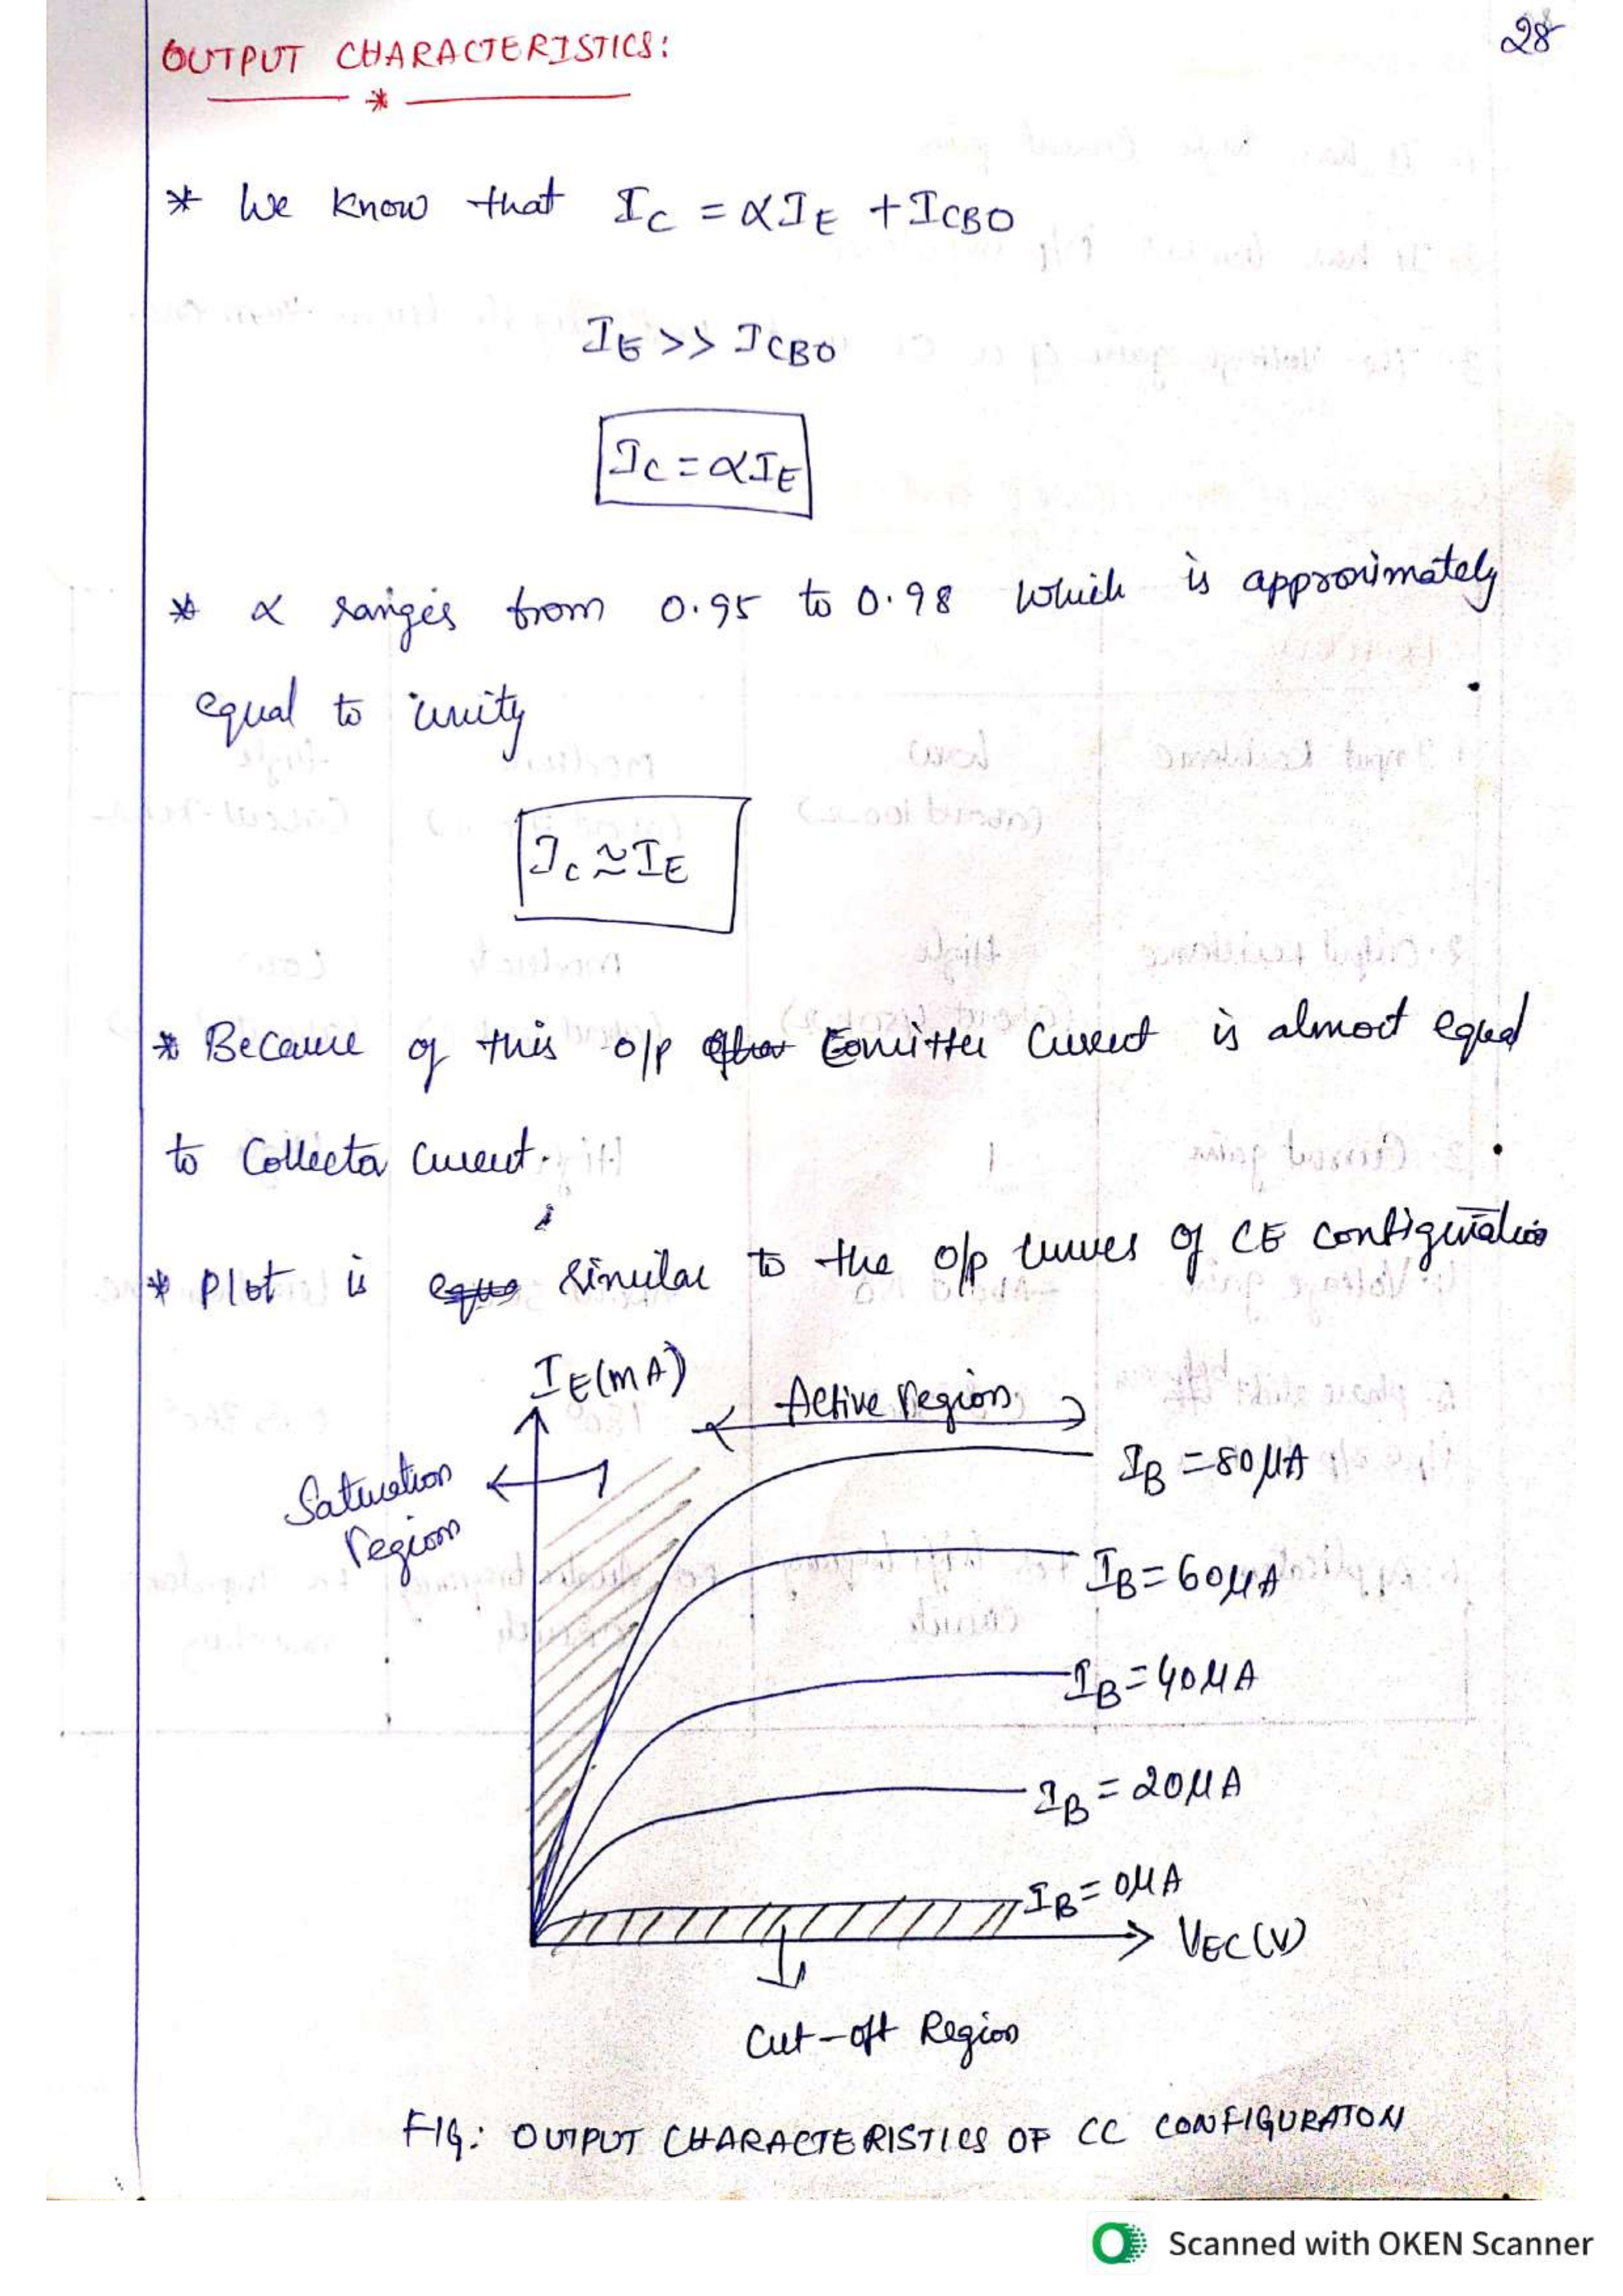 28
OUTPUT CHARACTERISTICS:
* We know that I_C = αI_E + I_CBO
I_E >> I_CBO
I_C = αI_E
* α ranges from 0.95 to 0.98 which is approximately
equal to unity
I_C ≈ I_E
* Because of this o/p Emitter Current is almost equal
to Collector Current.
* Plot is similar to the o/p curves of CE configuration
I_E(mA)
Active region
Saturation
region
I_B = 80μA
I_B = 60μA
I_B = 40μA
I_B = 20μA
I_B = 0μA
V_EC (V)
Cut-off Region
FIG: OUTPUT CHARACTERISTICS OF CC CONFIGURATON
Scanned with OKEN Scanner